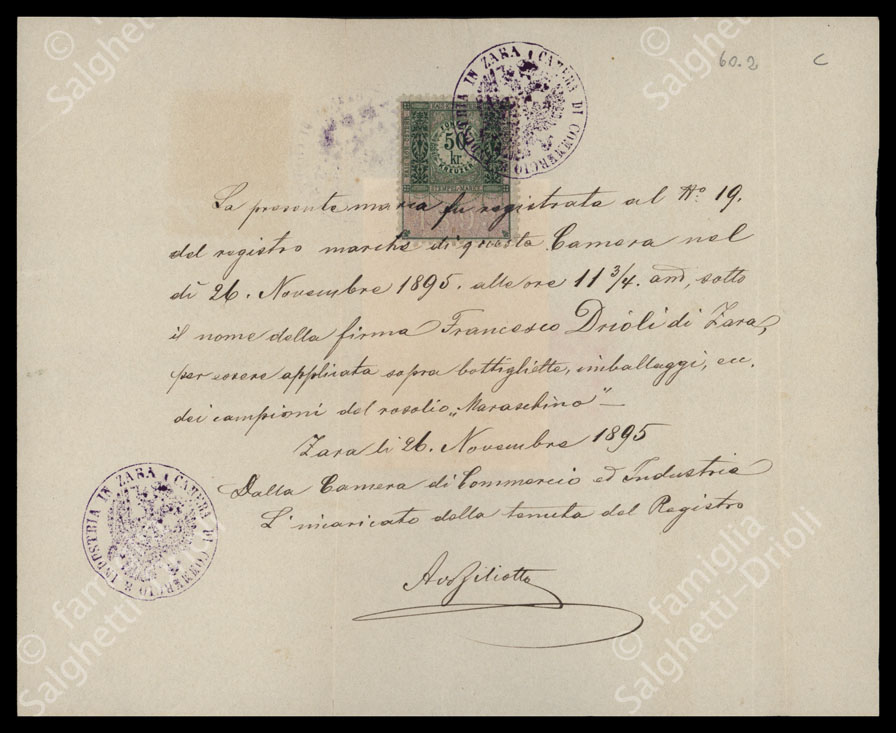 60.2 C
CAMERA DI COMMERCIO E INDUSTRIA IN ZARA
50
kr.
STEMPEL-MARKE
La presente marca fu registrata al No. 19.
del registro marche di questa Camera nel
dì 26. Novembre 1895. alle ore 11 3/4. ant, sotto
il nome della firma Francesco Drioli di Zara,
per essere applicata sopra bottigliette, imballaggi, ecc.
dei campioni del rosolio „Maraschino" —
Zara li 26. Novembre 1895
Dalla Camera di Commercio ed Industria
L'incaricato della tenuta del Registro
CAMERA DI COMMERCIO E INDUSTRIA IN ZARA
Avv Ziliotto
© famiglia
Salghetti-Drioli
© famiglia
Salghetti-Drioli
© famiglia
Salghetti-Drioli
© famiglia
Salghetti-Drioli